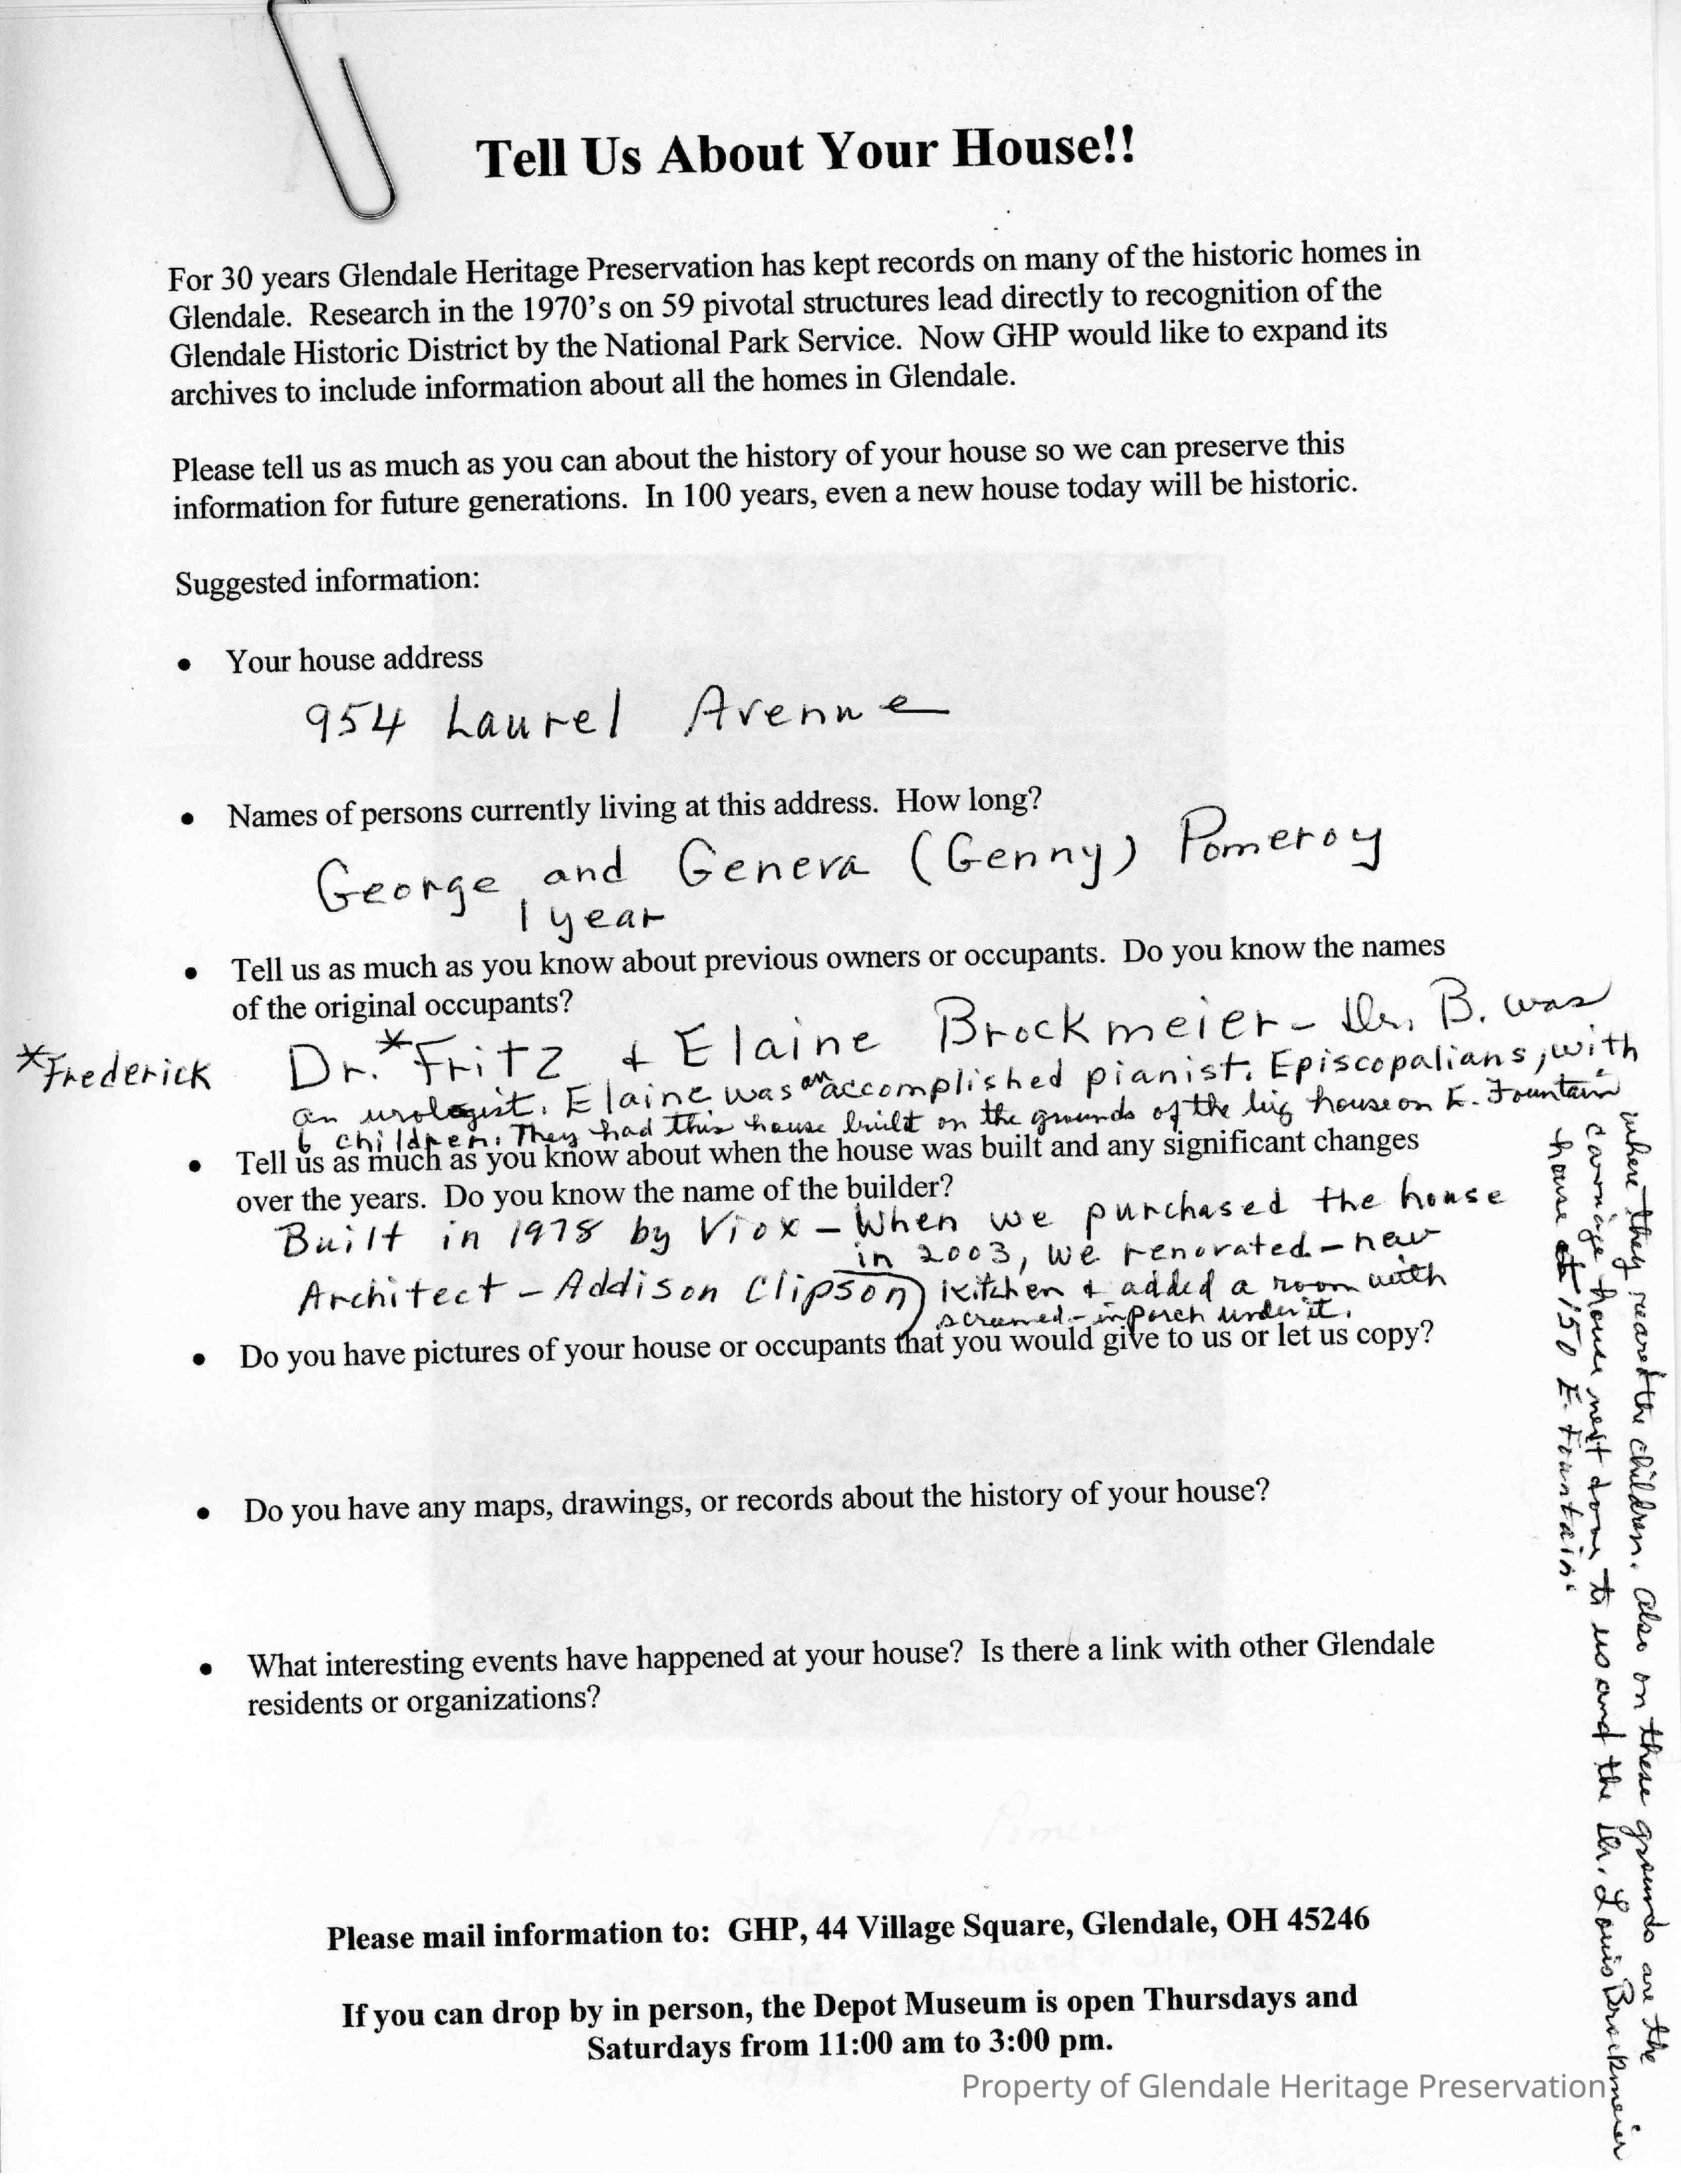 Tell Us About Your House!!
For 30 years Glendale Heritage Preservation has kept records on many of the historic homes in
Glendale. Research in the 1970's on 59 pivotal structures lead directly to recognition of the
Glendale Historic District by the National Park Service. Now GHP would like to expand its
archives to include information about all the homes in Glendale.
Please tell us as much as you can about the history of your house so we can preserve this
information for future generations. In 100 years, even a new house today will be historic.
Suggested information:
• Your house address
954 Laurel Avenue
• Names of persons currently living at this address. How long?
George and Geneva (Genny) Pomeroy
1 year
• Tell us as much as you know about previous owners or occupants. Do you know the names
of the original occupants?
*Frederick
Dr.* Fritz + Elaine Brockmeier – Dr. B. was
an urologist. Elaine was an accomplished pianist. Episcopalians, with
6 children. They had this house built on the grounds of the big house on E. Fountain
where they reared the children. Also on these grounds are the
carriage house next door to us and the Dr. Louis Brockmeier
house at 150 E. Fountain.
• Tell us as much as you know about when the house was built and any significant changes
over the years. Do you know the name of the builder?
Built in 1978 by Viox – When we purchased the house
in 2003, we renovated – new
Architect – Addison Clipson) kitchen + added a room with
screened-in porch under it.
• Do you have pictures of your house or occupants that you would give to us or let us copy?
• Do you have any maps, drawings, or records about the history of your house?
• What interesting events have happened at your house? Is there a link with other Glendale
residents or organizations?
Please mail information to: GHP, 44 Village Square, Glendale, OH 45246
If you can drop by in person, the Depot Museum is open Thursdays and
Saturdays from 11:00 am to 3:00 pm.
Property of Glendale Heritage Preservation